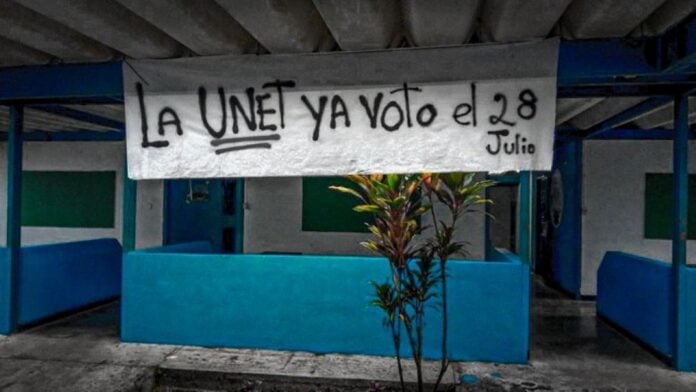 LA UNET YA VOTO el 28
Julio